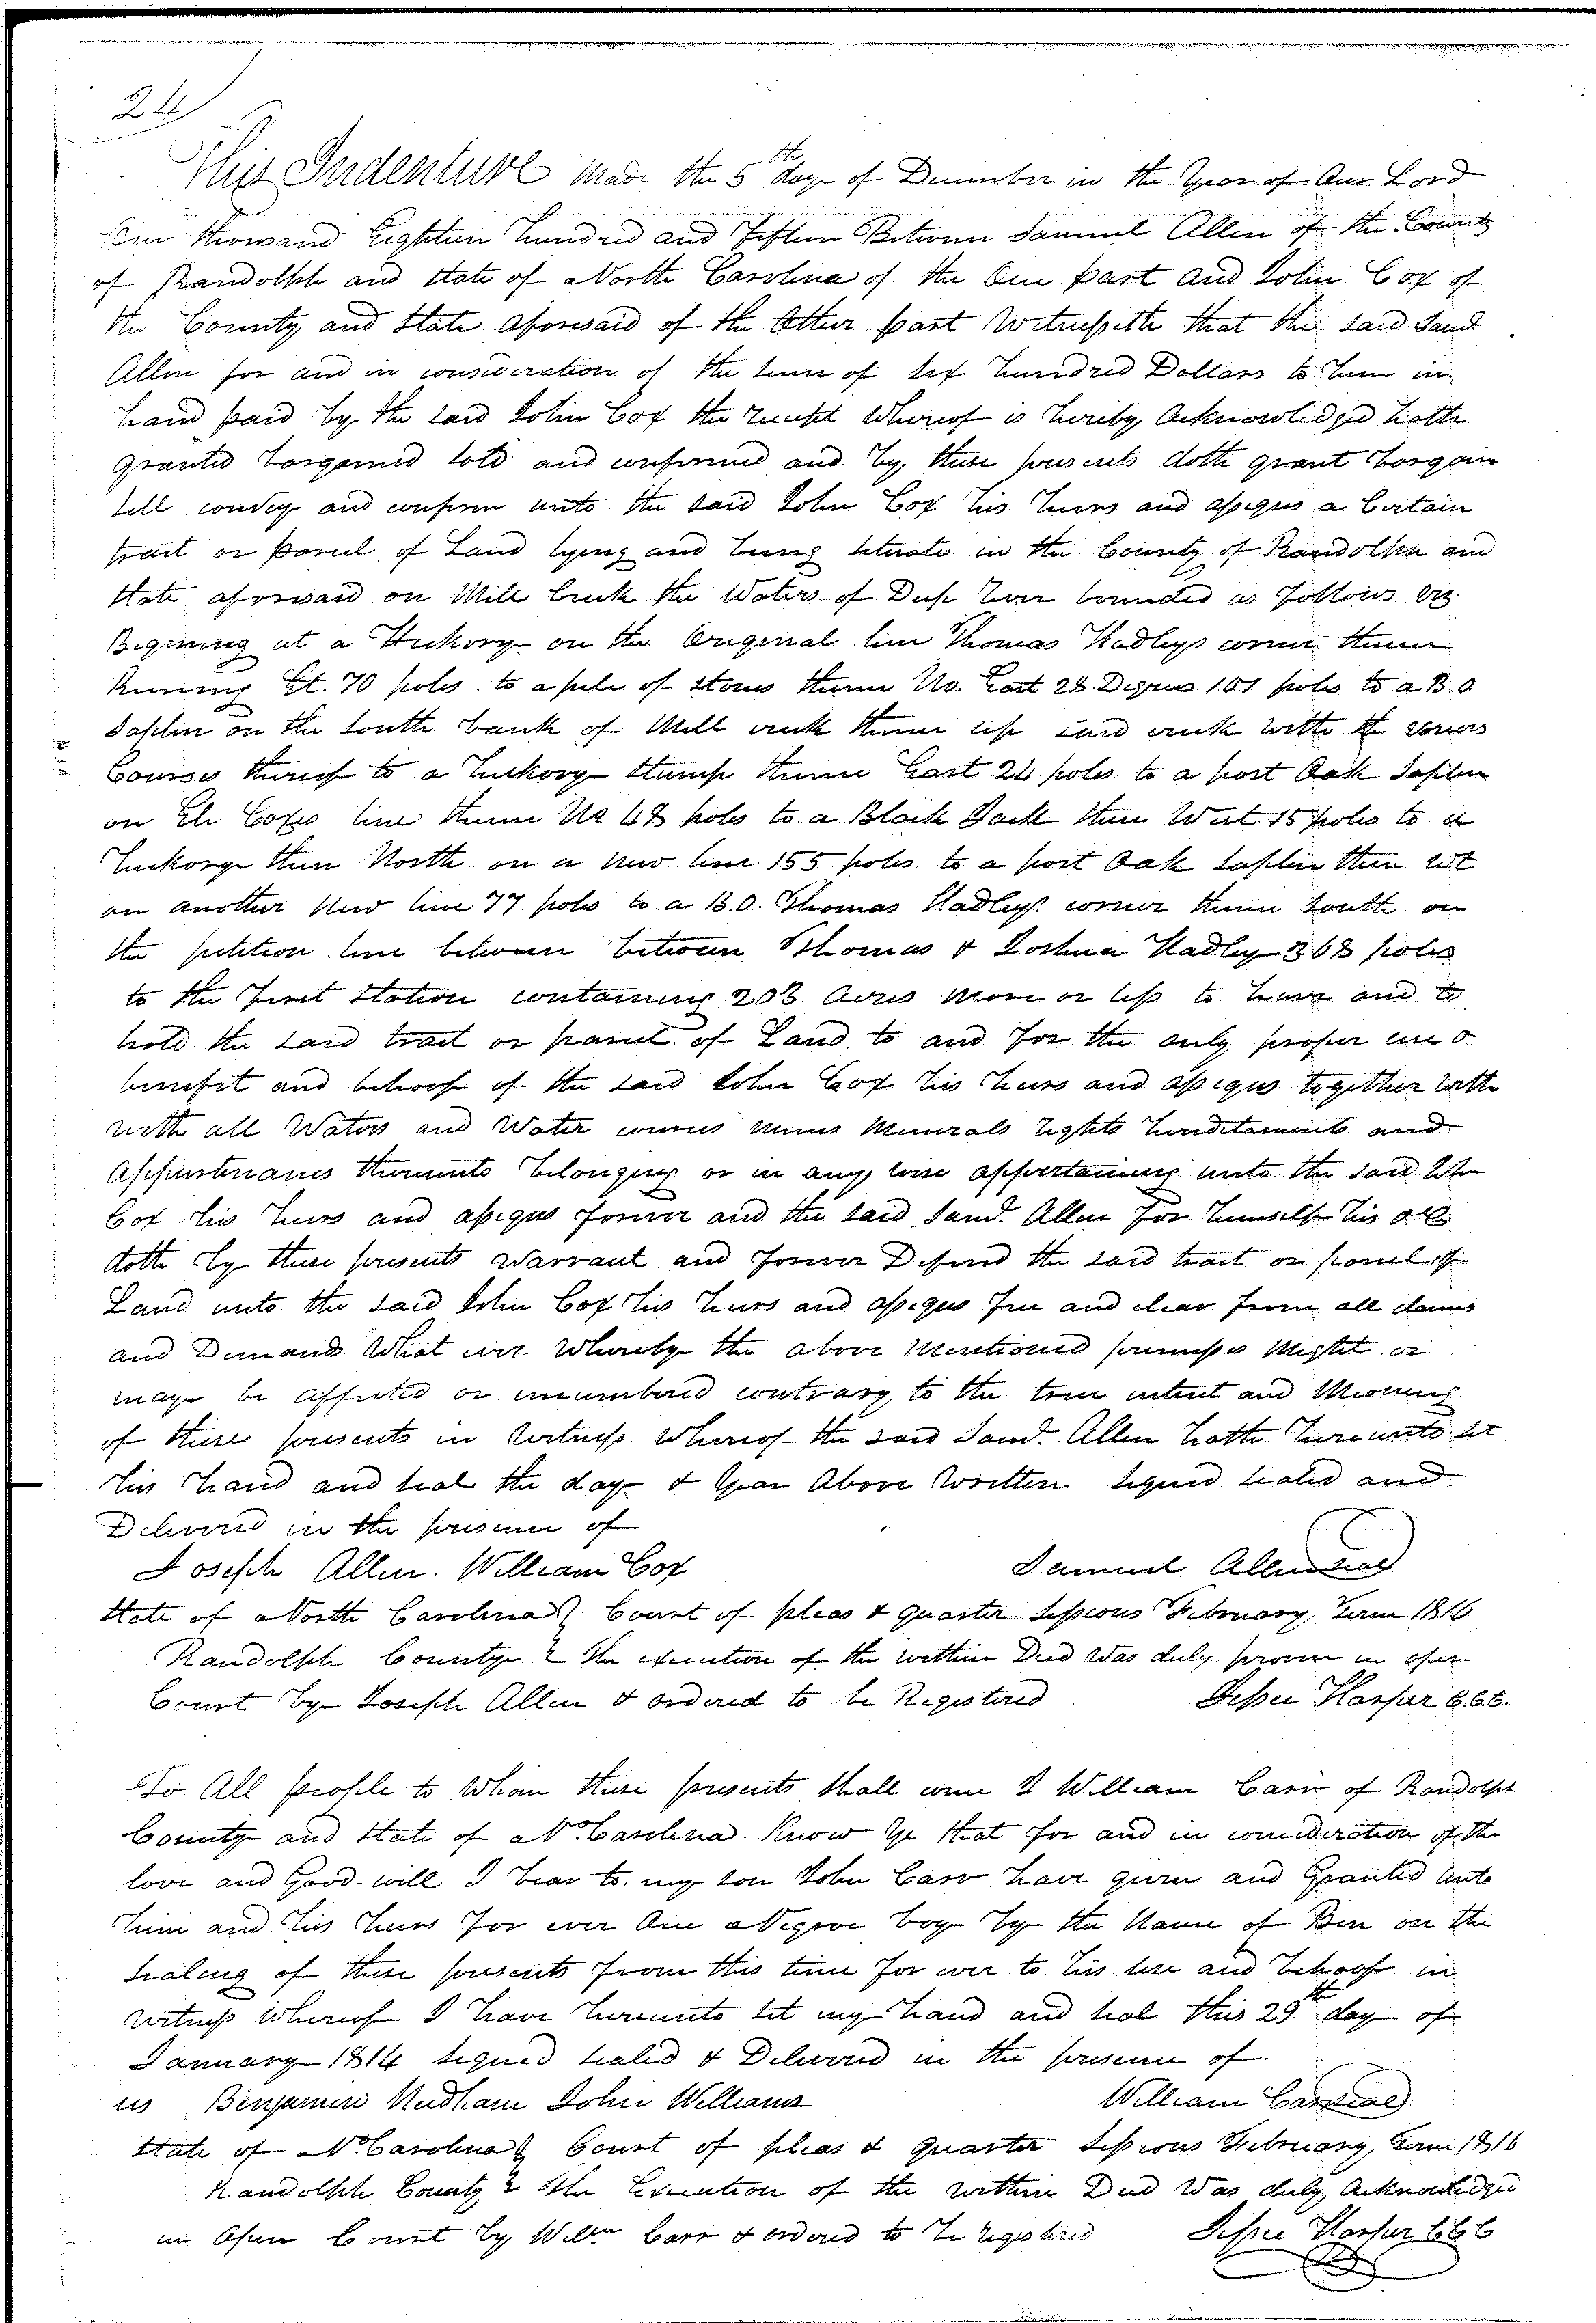 24
This Indenture Made the 5th day of December in the Year of Our Lord
One thowsand Eighteen hundred and Fifteen Between Samuel Allen of the County
of Randolph and State of North Carolina of the One part and John Cox of
the County and State aforesaid of the Other part Witnesseth that the said Saml.
Allen for and in consideration of the sum of Six hundred Dollars to him in
hand paid by the said John Cox the receipt Whereof is hereby Acknowledged hath
granted bargained sold and confirmed and by these presents doth grant bargain
sell convey and confirm unto the said John Cox his heirs and assigns a Certain
tract or parcel of Land lying and being situate in the County of Randolph and
State aforesaid on Mill Creek the Waters of Deep River bounded as Follows viz.
Begining at a Hickory on the Original line Thomas Hadleys corner thence
Runing Et. 70 poles to a pile of stones thence No. East 28 Degrees 101 poles to a B.O
Saplin on the South bank of Mill creek thence up said creek with the various
Courses thereof to a hickory stump thence East 24 poles to a post Oak Saplin
on Eli Coxes line thence No 48 poles to a Black Jack then West 15 poles to a
hickory then North on a new line 155 poles to a post Oak saplin then Wt
on another New line 77 poles to a B.O. Thomas Hadleys corner thence South on
the petition line between between Thomas & Joshua Hadley 368 poles
to the First Station containing 203 Acres more or less to have and to
hold the said tract or parcel of Land to and for the only proper use &
benefit and behoof of the said John Cox his heirs and assigns together with
with all Waters and Water courses mines Minerals rights hereditaments and
Appurtenances thereunto belonging or in any wise appertaining unto the said John
Cox his heirs and assigns forever and the said Saml. Allen for himself his &c
doth by these presents Warrant and forever Defend the said tract or parcel of
Land unto the said John Cox his heirs and assigns free and clear from all claims
and Demands What ever Whereby the above Mentioned premisses Might or
may be affected or incumbered contrary to the true intent and Meaning
of these presents in Witness Whereof the said Saml. Allen hath hereunto set
his hand and seal the day & Year Above Written signed sealed and
Delivered in the presence of
Joseph Allen. William Cox Samuel Allen seal
State of North Carolina } Court of pleas & quarter Sessions February Term 1816
Randolph County } the execution of the within Deed Was duly proven in open
Court by Joseph Allen & ordered to be Registered Jesse Harper C.C.C.
To All people to Whom these presents shall come I William Carr of Randolph
County and State of No. Carolina. Know Ye that for and in consideration of the
love and Good will I bear to my son John Carr have given and Granted unto
him and his heirs For ever One Negroe boy by the Name of Ben on the
sealing of these presents from this time for ever to his use and behoof in
witness whereof I have hereunto set my hand and seal this 29th day of
January 1814 signed sealed & Delivered in the presence of
us Benjamin Needham John Williams William Carr seal
State of No. Carolina } Court of pleas & quarter Sessions February Term 1816
Randolph County } the Execution of the within Deed Was duly Acknowledged
in Open Court by Willm Carr & ordered to be registered Jesse Harper CCC